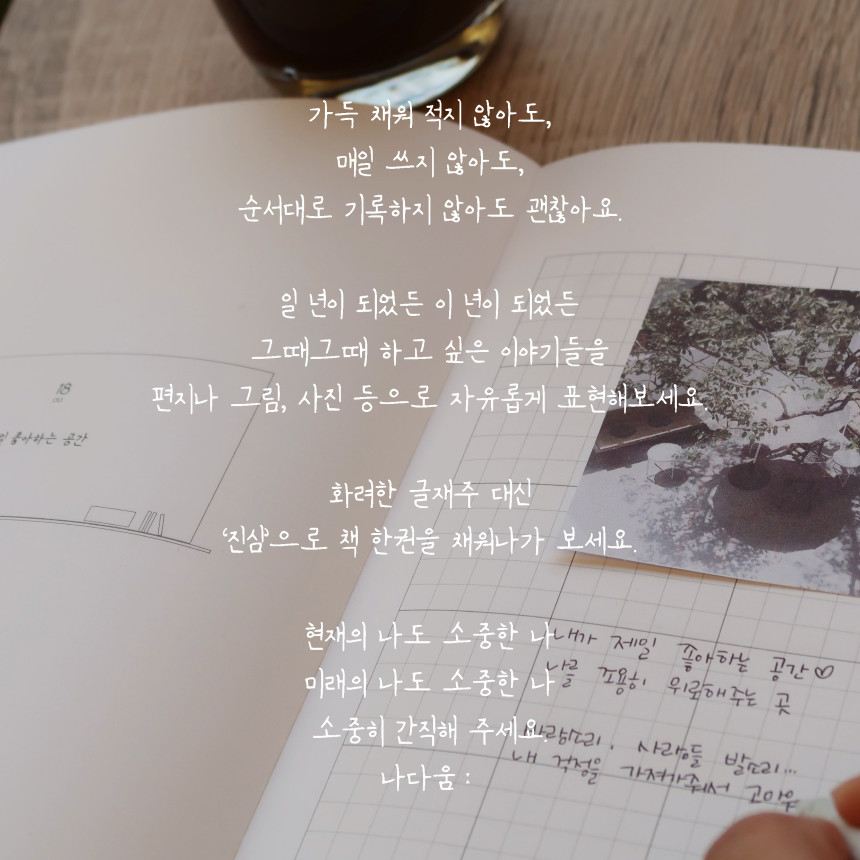 가득 채워 적지 않아도,
매일 쓰지 않아도,
순서대로 기록하지 않아도 괜찮아요.
일 년이 되었든 이 년이 되었든
그때그때 하고 싶은 이야기들을
편지나 그림, 사진 등으로 자유롭게 표현해보세요.
화려한 글재주 대신
'진심'으로 책 한권을 채워나가 보세요.
현재의 나도 소중한 나
미래의 나도 소중한 나
소중히 간직해 주세요.
나다움 :
18
좋아하는 공간
내가 제일 좋아하는 공간♡
나를 조용히 위로해주는 곳
바람소리, 사람들 발소리...
내 걱정을 가져가줘서 고마워